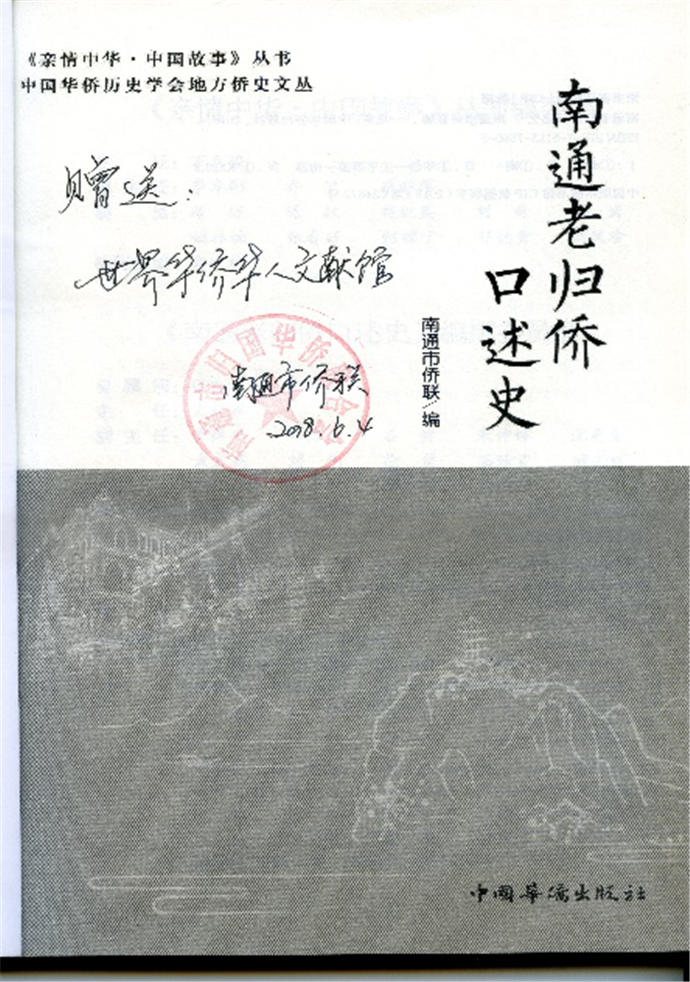 《亲情中华·中国故事》丛书
中国华侨历史学会地方侨史文丛
南通老归侨
口述史
南通市侨联/编
赠送：
世界华侨华人文献馆
南通市侨联
2018.6.4
中国华侨出版社